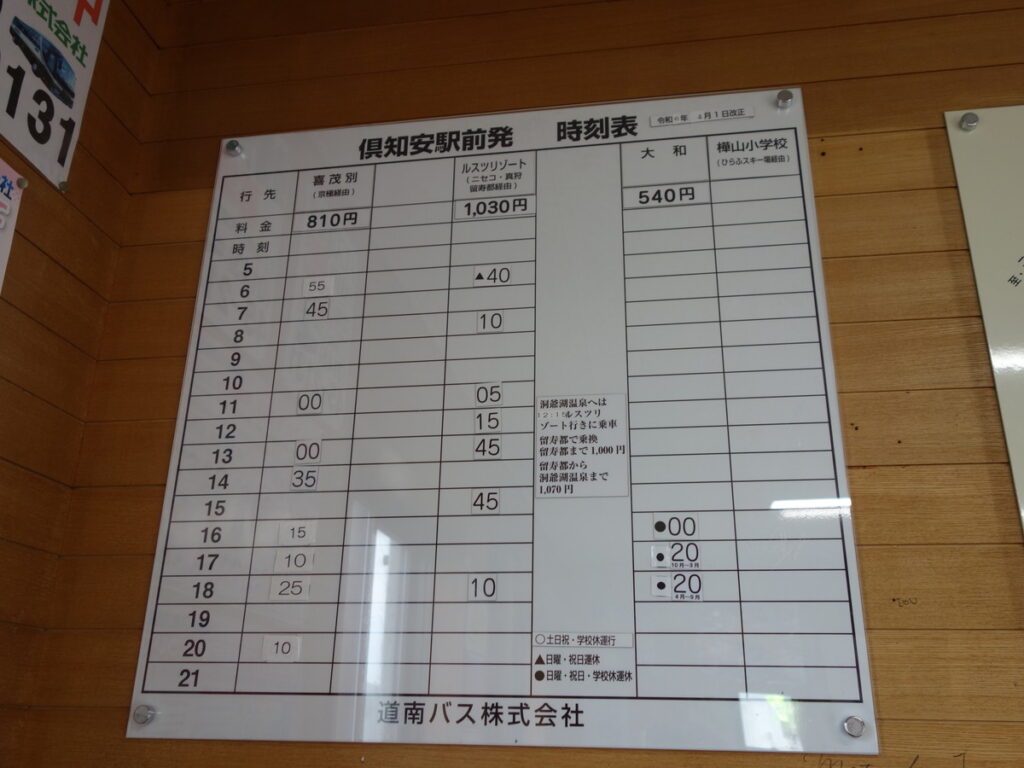 株式会社
131
社
倶知安駅前発 時刻表
令和6年 4月1日改正
行先 喜茂別 ルスツリゾート 大和 樺山小学校
(京極経由) (ニセコ・真狩 留寿都経由) (ひらふスキー場経由)
料金 810円 1,030円 540円
時刻
5
6 55 ▲40
7 45
8 10
9
10
11 00 05
12 15
13 00 45
14 35
15 45
16 15 ●00
17 10 ●20 10月~3月
18 25 10 ●20 4月~9月
19
20 10
21
洞爺湖温泉へは
12:15ルスツリ
ゾート行きに乗車
留寿都で乗換
留寿都まで1,000円
留寿都から
洞爺湖温泉まで
1,070円
○土日祝・学校休運行
▲日曜・祝日運休
●日曜・祝日・学校休運休
道南バス株式会社
至